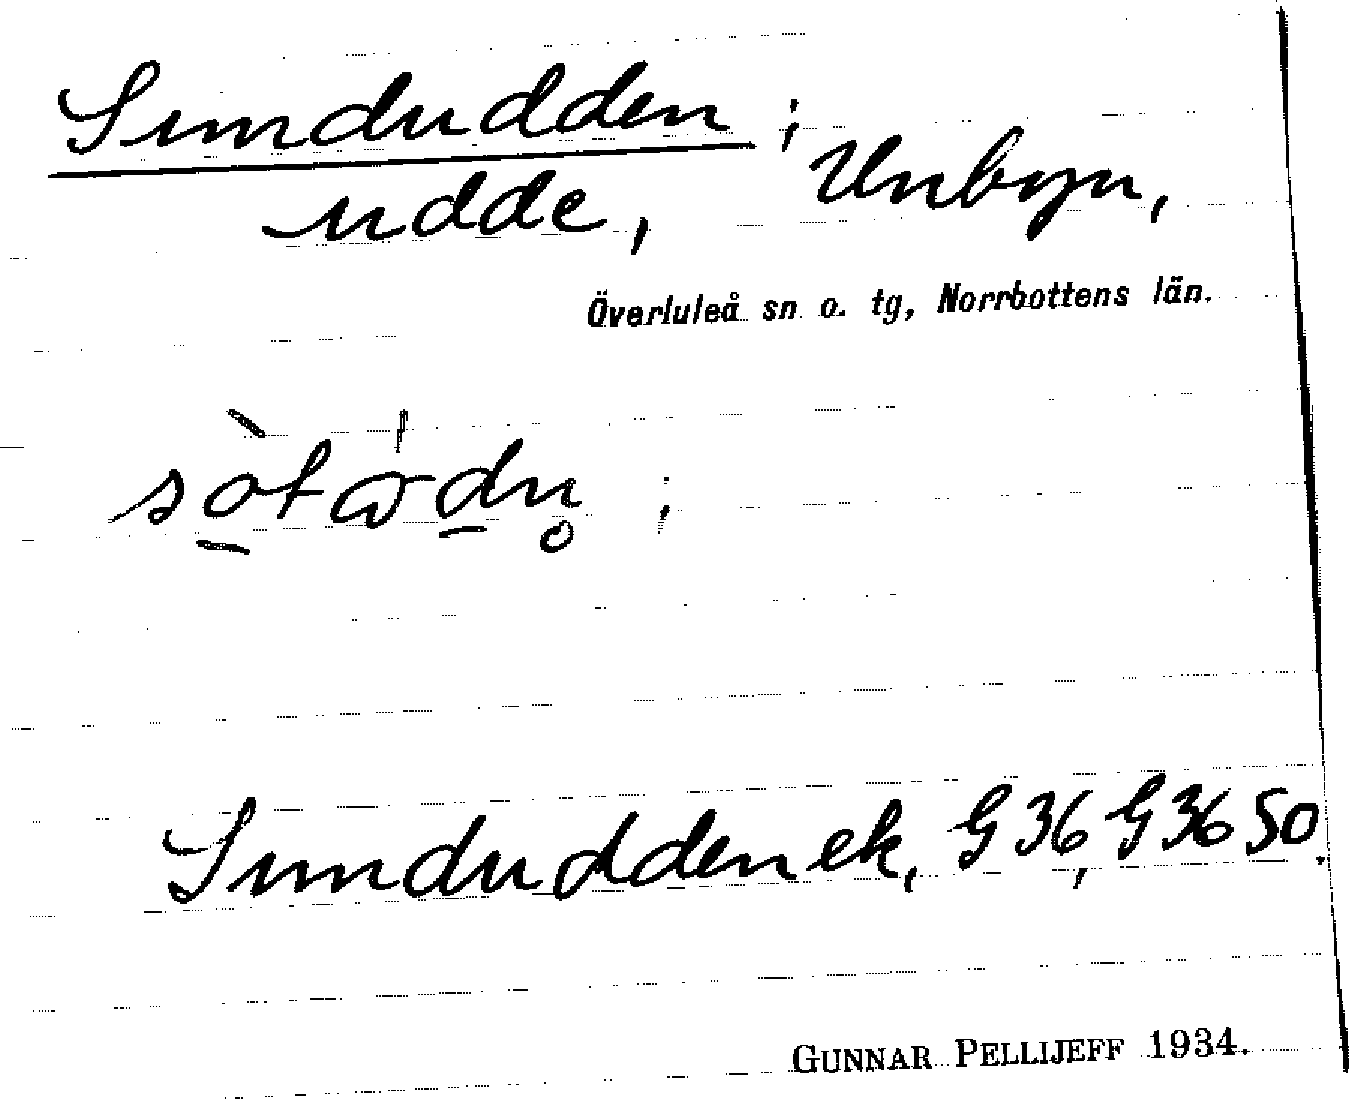 Sundudden ;
udde, Unbyn,
Överluleå sn o. tg, Norrbottens län.
Sundudden ek, G36, G36 SO.
GUNNAR PELLIJEFF 1934.